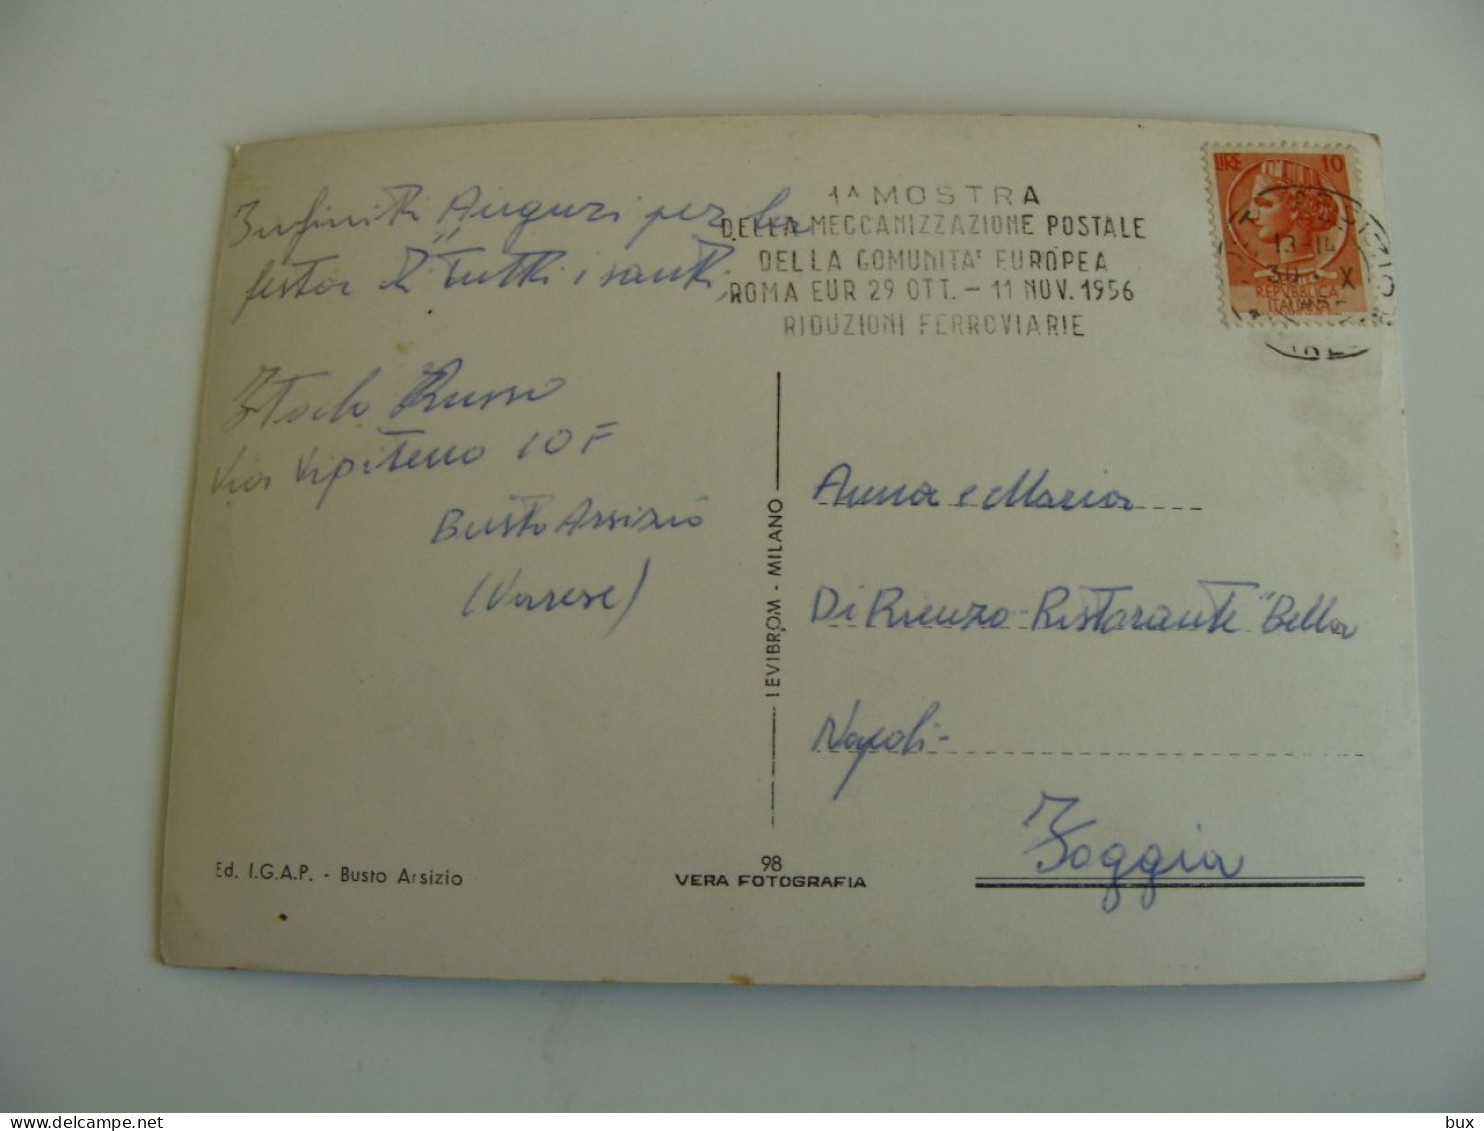 1ª MOSTRA
DELLA MECCANIZZAZIONE POSTALE
DELLA COMUNITA' EUROPEA
ROMA EUR 29 OTT. - 11 NOV. 1956
RIDUZIONI FERROVIARIE
LIRE 10
13-14
30 X
REPUBBLICA
ITALIANA
Infiniti Auguri per la
festa di "Tutti i santi,,
Italo Russo
Via Vipiteno 10 F
Busto Arsizio
(Varese)
Anna e Maria
Di Rienzo - Ristorante "Bella
Napoli -
Foggia
LEVIBROM - MILANO
Ed. I.G.A.P. - Busto Arsizio
98
VERA FOTOGRAFIA
bux